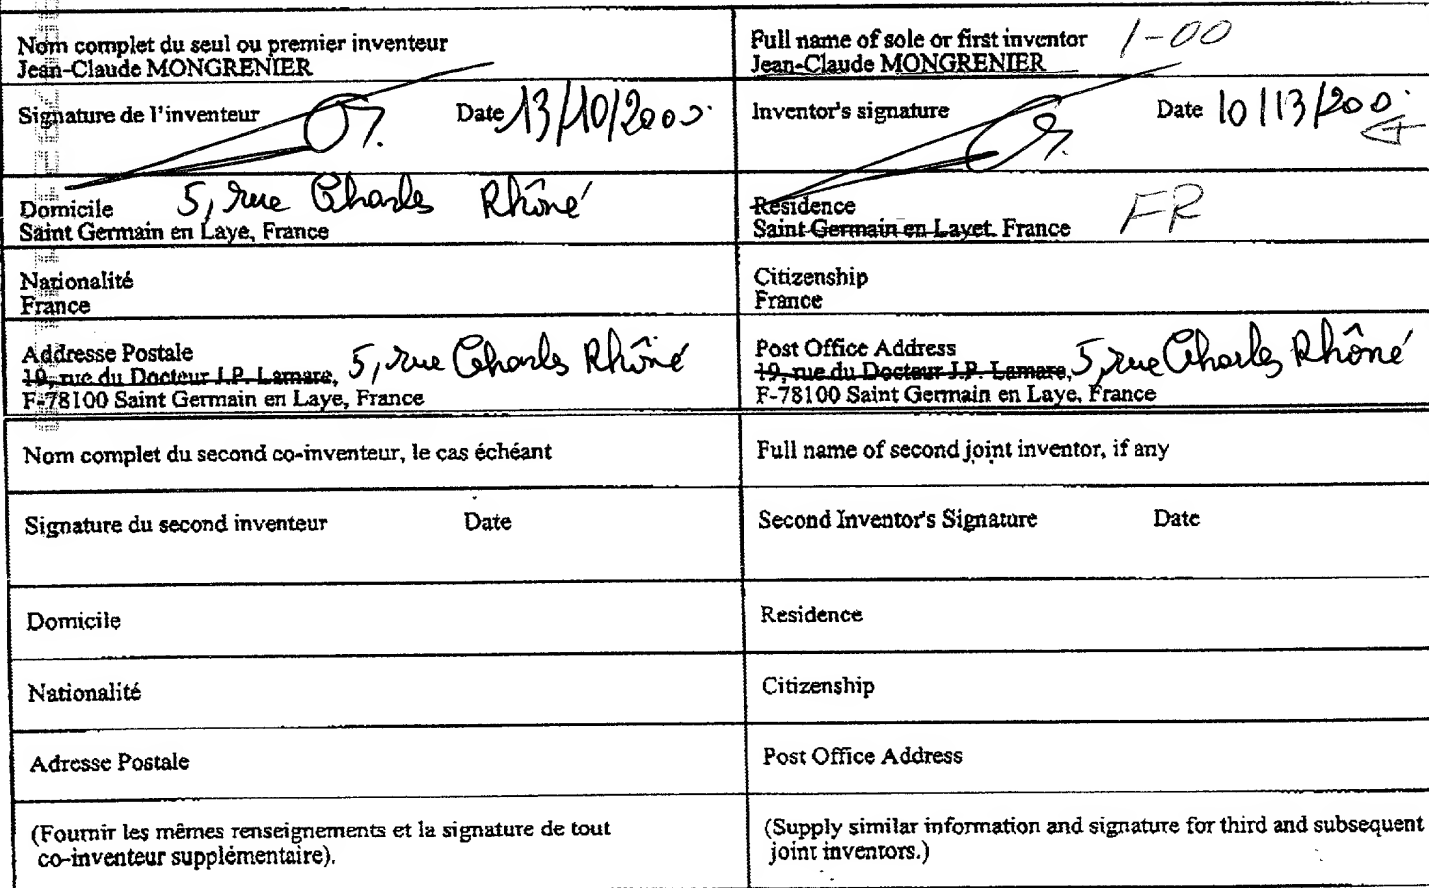 Nom complet du seul ou premier inventeur
Jean-Claude MONGRENIER
Full name of sole or first inventor 1-00
Jean-Claude MONGRENIER
Signature de l'inventeur Date 13/10/2000
Inventor's signature Date 10/13/200
Domicile 5, rue Charles Rhôné
Saint Germain en Laye, France
Residence FR
Saint Germain en Layet France
Nationalité
France
Citizenship
France
Addresse Postale
19, rue du Docteur J.P. Lamare, 5, rue Charles Rhôné
F-78100 Saint Germain en Laye, France
Post Office Address
19, rue du Docteur J.P. Lamare, 5, rue Charles Rhôné
F-78100 Saint Germain en Laye, France
Nom complet du second co-inventeur, le cas échéant
Full name of second joint inventor, if any
Signature du second inventeur Date
Second Inventor's Signature Date
Domicile
Residence
Nationalité
Citizenship
Adresse Postale
Post Office Address
(Fournir les mêmes renseignements et la signature de tout
co-inventeur supplémentaire).
(Supply similar information and signature for third and subsequent
joint inventors.)